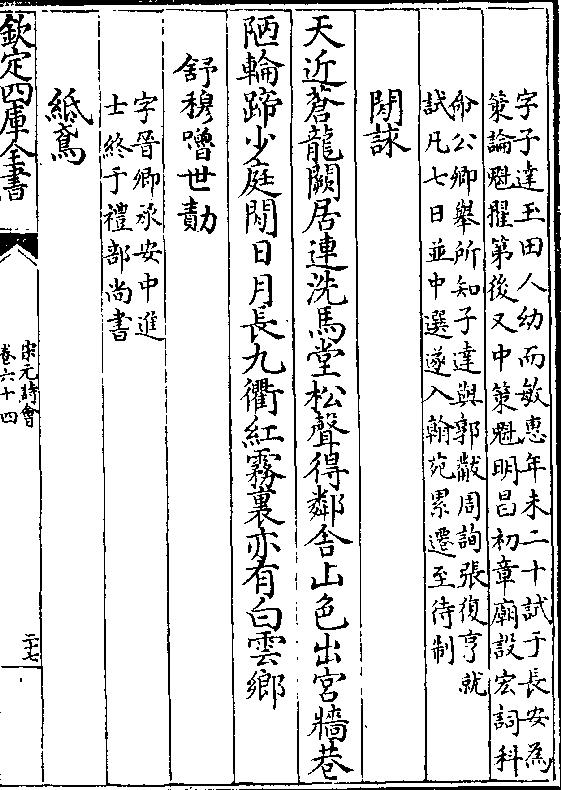 字子達玉田人幼而敏惠年未二十試于長安為
策論魁擢第後又中策魁明昌初章廟設宏詞科
命公卿舉所知子達與郭黻周詢張復亨就
試凡七日並中選遂入翰苑累遷至待制
閒詠
天近蒼龍闕居連洗馬堂松聲得鄰舍山色出宮牆巷
陋輪蹄少庭閒日月長九衢紅霧裏亦有白雲鄉
舒穆嚕世勣
字晉卿承安中進
士終于禮部尚書
紙鳶
欽定四庫全書
宋元詩會
卷六十四
二十七